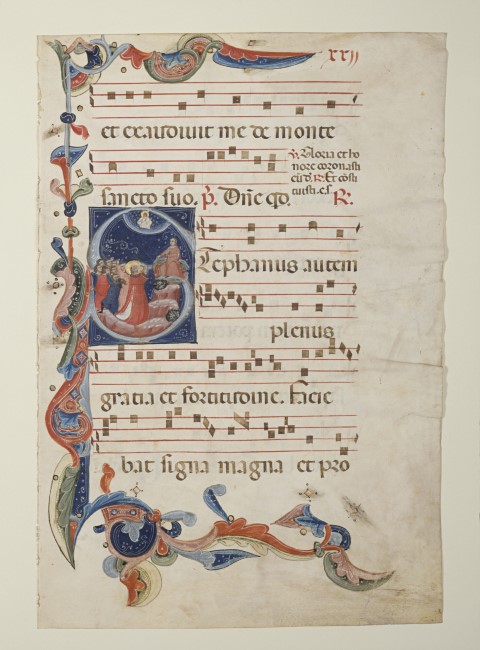 xxij
et exaudiuit me de monte
℣. Gloria et ho
nore coronasti
eū d. ℟. Et cōsti
tuisti. e. s.
sancto suo. p̄. Dn̄e qd. ℟.
Stephanus autem
plenus
gratia et fortitudine. Facie
bat signa magna et pro